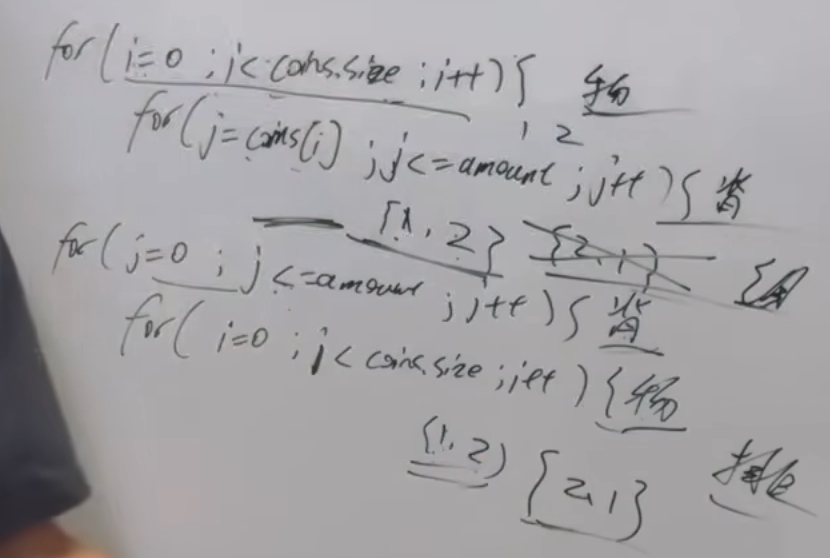 for(i=0 ; i<coins.size ; i++){ 物
1 2
for(j=coins[i] ; j<=amount ; j++){ 背
{1, 2} {2, 1}
for(j=0 ; j<=amount ; j++){ 背
for(i=0 ; i<coins.size ; i++){ 物
{1, 2} {2, 1} 排